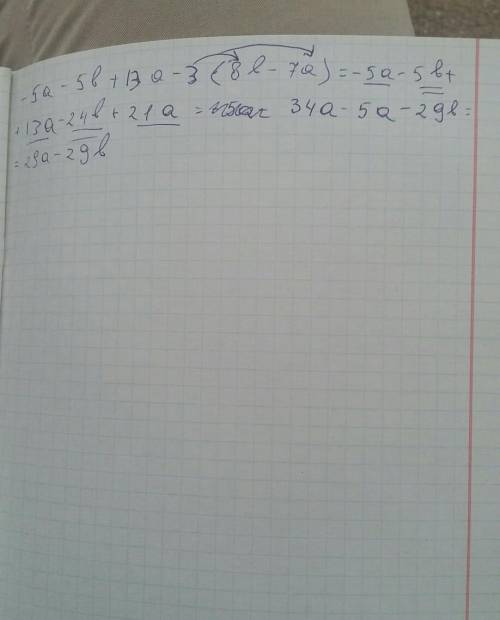 -5a - 5b + 13a - 3(8b - 7a) = -5a - 5b +
+ 13a - 24b + 21a = 34a - 5a - 29b =
= 29a - 29b